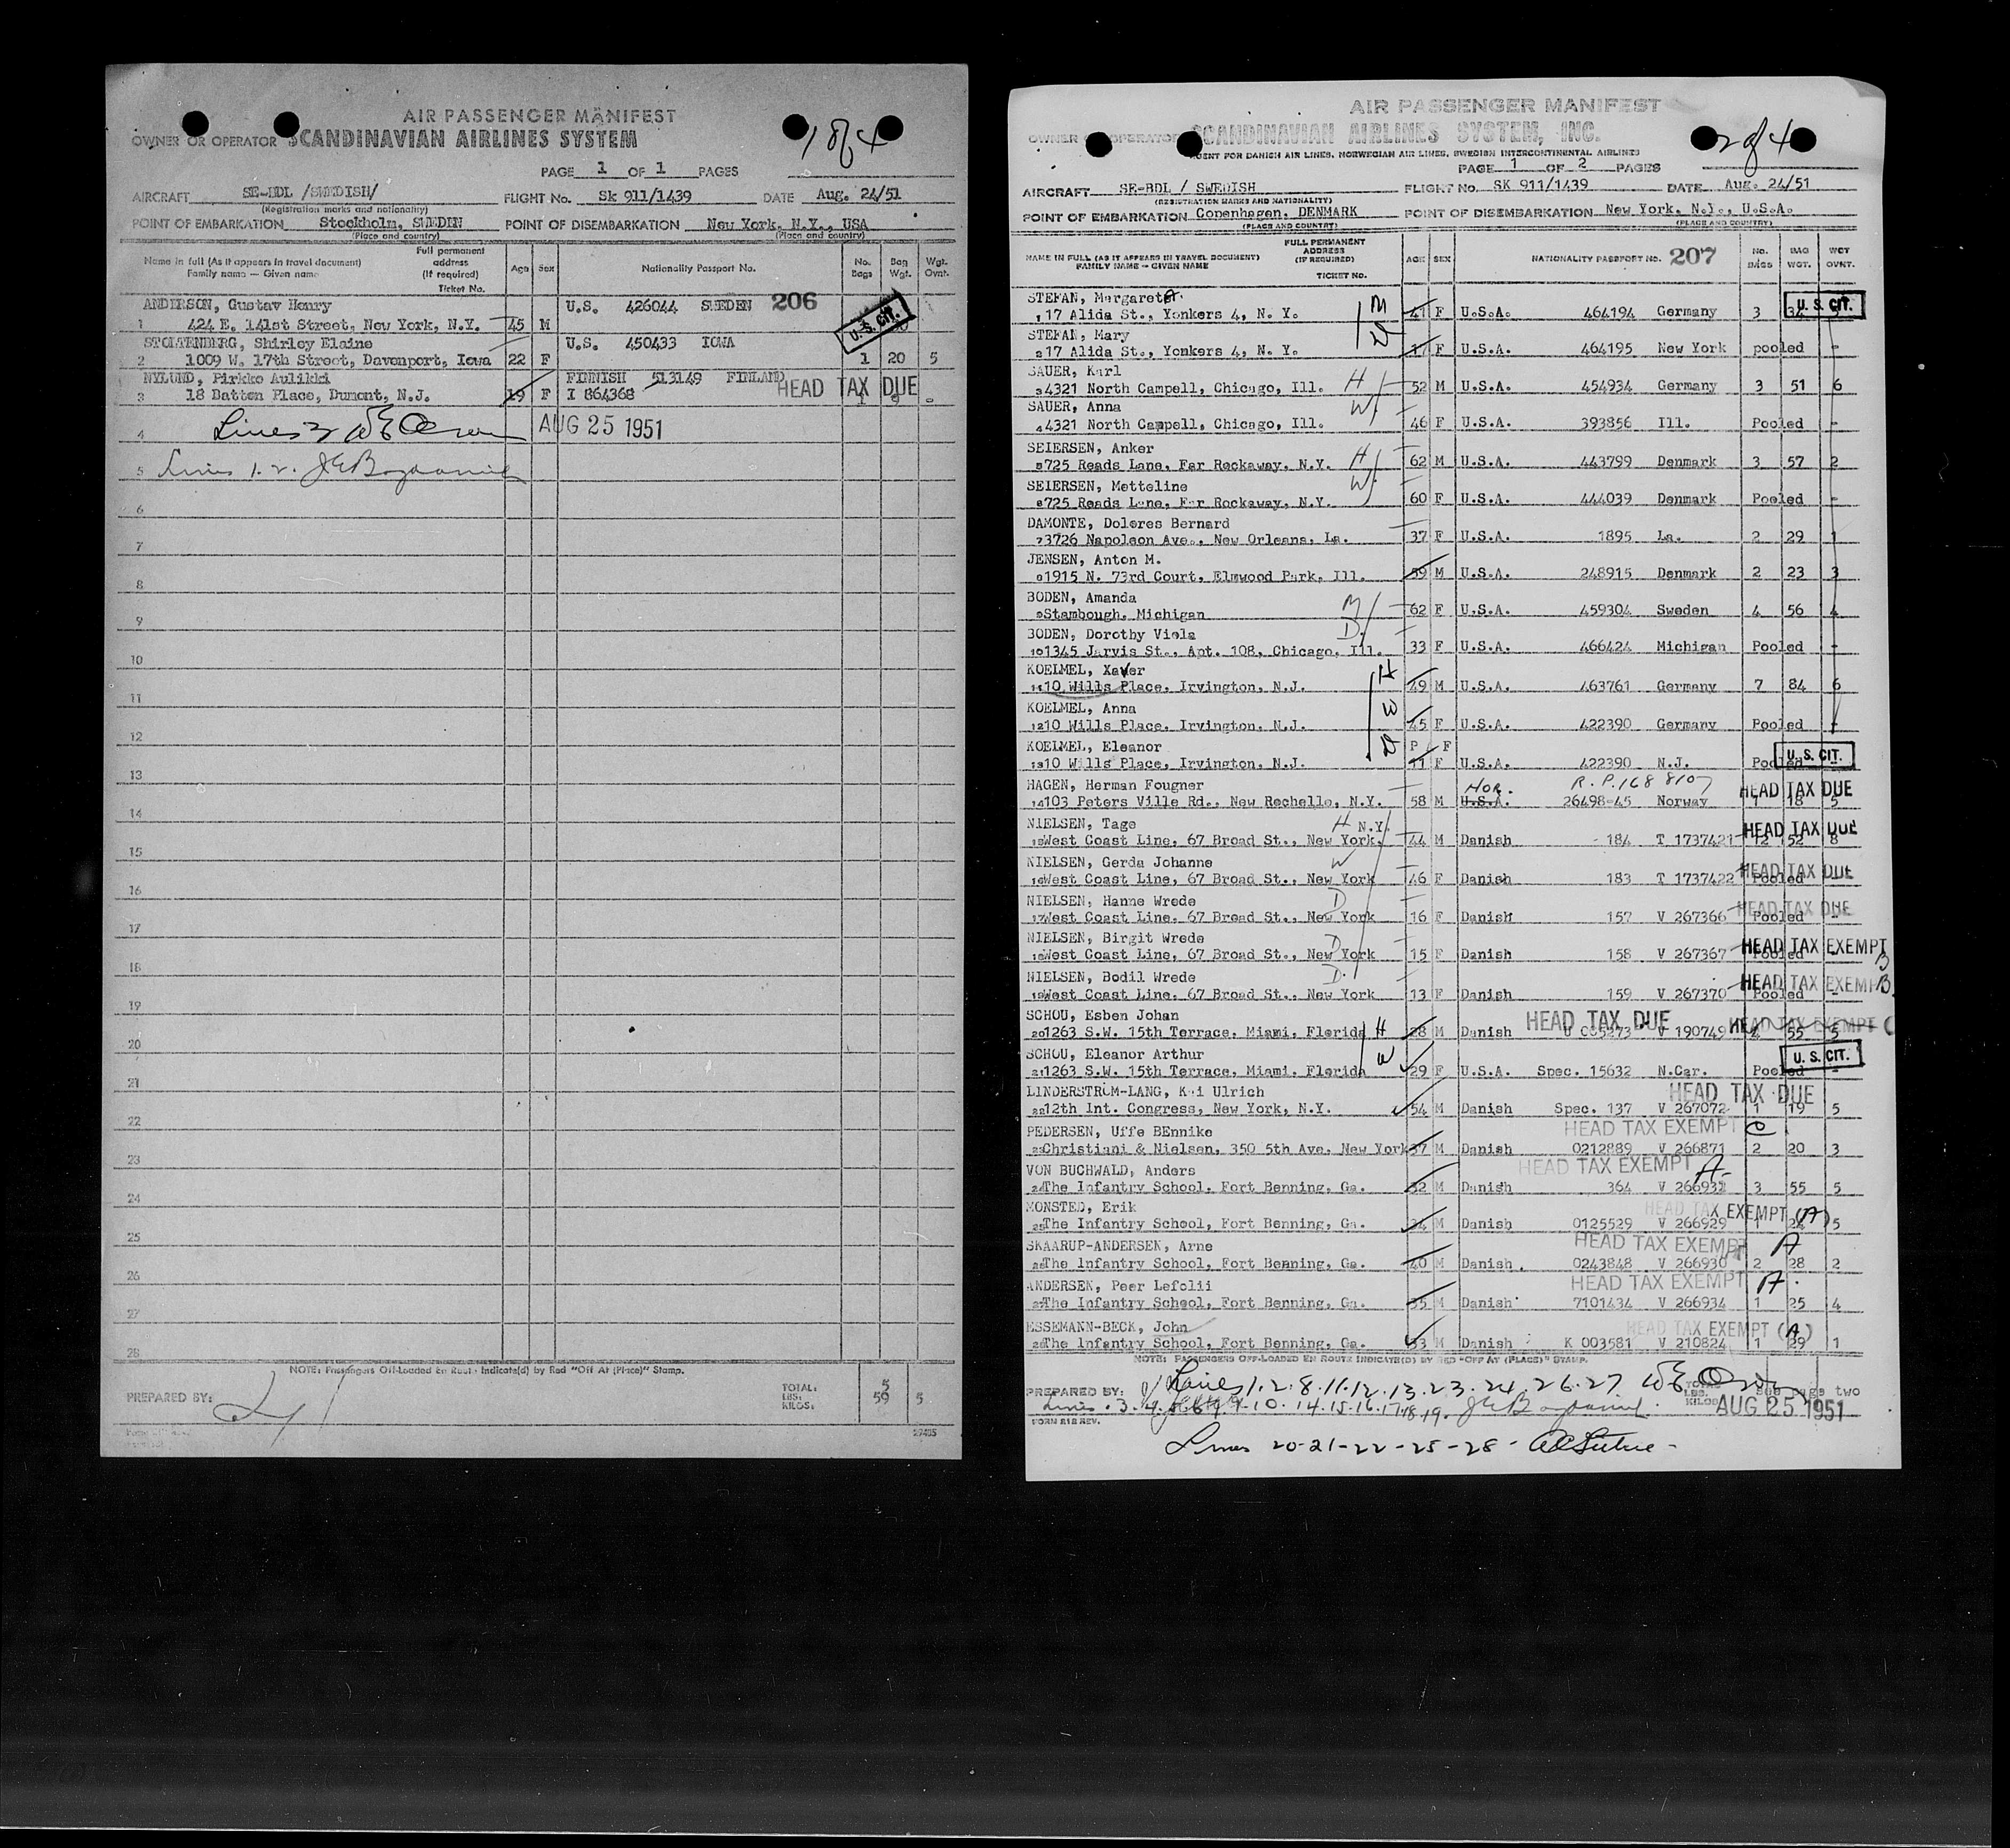 AIR PASSENGER MANIFEST
OWNER OR OPERATOR SCANDINAVIAN AIRLINES SYSTEM
1 of 4
PAGE 1 OF 1 PAGES
AIRCRAFT SE-BDL /SWEDISH/ FLIGHT No. Sk 911/1439 DATE Aug. 24/51
(Registration marks and nationality)
POINT OF EMBARKATION Stockholm, SWEDEN POINT OF DISEMBARKATION New York, N.Y., USA
(Place and country) (Place and country)
Name in full (As it appears in travel document) Family name — Given name Full permanent address (If required) Ticket No. Age Sex Nationality Passport No. No. Bags Bag Wgt. Wgt. Ovnt.
ANDERSON, Gustav Henry U.S. 426044 SWEDEN 206
1 424 E. 141st Street, New York, N.Y. 45 M U.S. CIT.
STOLTENBERG, Shirley Elaine U.S. 450433 IOWA
2 1009 W. 17th Street, Davenport, Iowa 22 F 1 20 5
NYLUND, Pirkko Aulikki FINNISH 513149 FINLAND HEAD TAX DUE
3 18 Batten Place, Dumont, N.J. 19 F I 864368
4 AUG 25 1951
5 Lines 1. 2.
6
7
8
9
10
11
12
13
14
15
16
17
18
19
20
21
22
23
24
25
26
27
28
NOTE: Passengers Off-Loaded En Route Indicate(d) by Red "Off At (Place)" Stamp.
PREPARED BY: TOTAL: 5
LBS: 59 5
KILOS:
27405
AIR PASSENGER MANIFEST
OWNER OR OPERATOR SCANDINAVIAN AIRLINES SYSTEM, INC.
2 of 4
AGENT FOR DANISH AIR LINES, NORWEGIAN AIR LINES, SWEDISH INTERCONTINENTAL AIRLINES
PAGE 1 OF 2 PAGES
AIRCRAFT SE-BDL / SWEDISH FLIGHT No. SK 911/1439 DATE Aug. 24/51
(REGISTRATION MARKS AND NATIONALITY)
POINT OF EMBARKATION Copenhagen, DENMARK POINT OF DISEMBARKATION New York, N.Y., U.S.A.
(PLACE AND COUNTRY) (PLACE AND COUNTRY)
NAME IN FULL (AS IT APPEARS IN TRAVEL DOCUMENT) FAMILY NAME - GIVEN NAME FULL PERMANENT ADDRESS (IF REQUIRED) TICKET NO. AGE SEX NATIONALITY PASSPORT NO. 207 No. BAGS BAG WGT. WGT OVNT.
STEFAN, Margarete M U.S. CIT.
1 17 Alida St., Yonkers 4, N. Y. 41 F U.S.A. 464194 Germany 3 34
STEFAN, Mary D
2 17 Alida St., Yonkers 4, N. Y. 17 F U.S.A. 464195 New York pooled -
SAUER, Karl
3 4321 North Campell, Chicago, Ill. H 52 M U.S.A. 454934 Germany 3 51 6
SAUER, Anna
4 4321 North Campell, Chicago, Ill. W 46 F U.S.A. 393856 Ill. Pooled -
SEIERSEN, Anker
5 725 Reads Lane, Far Rockaway, N.Y. H 62 M U.S.A. 443799 Denmark 3 57 2
SEIERSEN, Metteline W
6 725 Reads Lane, Far Rockaway, N.Y. 60 F U.S.A. 444039 Denmark Pooled -
DAMONTE, Dolores Bernard
7 3726 Napoleon Ave., New Orleans, La. 37 F U.S.A. 1895 La. 2 29 1
JENSEN, Anton M.
8 1915 N. 73rd Court, Elmwood Park, Ill. 59 M U.S.A. 248915 Denmark 2 23 3
BODEN, Amanda
9 Stambough, Michigan M 62 F U.S.A. 459304 Sweden 4 56 4
BODEN, Dorothy Viola D
10 1345 Jarvis St., Apt. 108, Chicago, Ill. 33 F U.S.A. 466424 Michigan Pooled -
KOELMEL, Xaver H
11 10 Wills Place, Irvington, N.J. 49 M U.S.A. 463761 Germany 7 84 6
KOELMEL, Anna W
12 10 Wills Place, Irvington, N.J. 45 F U.S.A. 422390 Germany Pooled -
KOELMEL, Eleanor D P F U.S. CIT.
13 10 Wills Place, Irvington, N.J. 11 F U.S.A. 422390 N.J. Pooled
HAGEN, Herman Fougner Nor. R.P. 168 8107 HEAD TAX DUE
14 103 Peters Ville Rd., New Rochelle, N.Y. 58 M U.S.A. 26498-45 Norway 1 18 5
NIELSEN, Tage H N.Y. HEAD TAX DUE
15 West Coast Line, 67 Broad St., New York. 44 M Danish 184 T 1737421 12 52 8
NIELSEN, Gerda Johanne W HEAD TAX DUE
16 West Coast Line, 67 Broad St., New York 46 F Danish 183 T 1737422 Pooled
NIELSEN, Hanne Wrede D HEAD TAX DUE
17 West Coast Line, 67 Broad St., New York 16 F Danish 157 V 267366 Pooled -
NIELSEN, Birgit Wrede D HEAD TAX EXEMPT B
18 West Coast Line, 67 Broad St., New York 15 F Danish 158 V 267367 Pooled
NIELSEN, Bodil Wrede D HEAD TAX EXEMPT B
19 West Coast Line, 67 Broad St., New York 13 F Danish 159 V 267370 Pooled -
SCHOU, Esben Johan HEAD TAX DUE HEAD TAX EXEMPT C
20 1263 S.W. 15th Terrace, Miami, Florida H 28 M Danish V 190749 4 55 5
SCHOU, Eleanor Arthur W U.S. CIT.
21 1263 S.W. 15th Terrace, Miami, Florida 29 F U.S.A. Spec. 15632 N.Car. Pooled -
LINDERSTROM-LANG, Kai Ulrich HEAD TAX DUE
22 12th Int. Congress, New York, N.Y. 54 M Danish Spec. 137 V 267072 1 19 5
PEDERSEN, Uffe BEnnike HEAD TAX EXEMPT C
23 Christiani & Nielsen, 350 5th Ave. New York 37 M Danish 0212889 V 266871 2 20 3
VON BUCHWALD, Anders HEAD TAX EXEMPT A
24 The Infantry School, Fort Benning, Ga. 32 M Danish 364 V 266932 3 55 5
MONSTED, Erik HEAD TAX EXEMPT (A)
25 The Infantry School, Fort Benning, Ga. 34 M Danish 0125529 V 266929 1 24 5
SKAARUP-ANDERSEN, Arne HEAD TAX EXEMPT A
26 The Infantry School, Fort Benning, Ga. 40 M Danish 0243848 V 266930 2 28 2
ANDERSEN, Peer Lefolii HEAD TAX EXEMPT A
27 The Infantry School, Fort Benning, Ga. 35 M Danish 7101434 V 266934 1 25 4
ESSEMANN-BECK, John HEAD TAX EXEMPT (A)
28 The Infantry School, Fort Benning, Ga. 33 M Danish K 003581 V 210824 1 29 1
NOTE: PASSENGERS OFF-LOADED EN ROUTE INDICATE(D) BY RED "OFF AT (PLACE)" STAMP.
PREPARED BY: Lines 1.2.8.11.12.13.23.24.26.27 See page two
Lines 10.14.15.16.17.18.19. AUG 25 1951
FORM 818 REV.
Lines 20-21-22-25-28